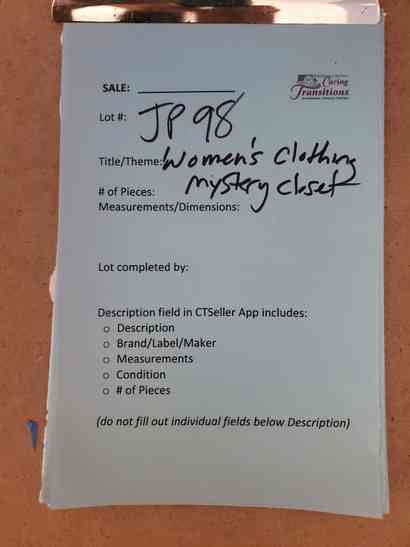 SALE: ____________
Caring
Transitions
Lot #: JP 98
Title/Theme: Women's Clothing
# of Pieces: Mystery Closet
Measurements/Dimensions:
Lot completed by:
Description field in CTSeller App includes:
o Description
o Brand/Label/Maker
o Measurements
o Condition
o # of Pieces
(do not fill out individual fields below Description)